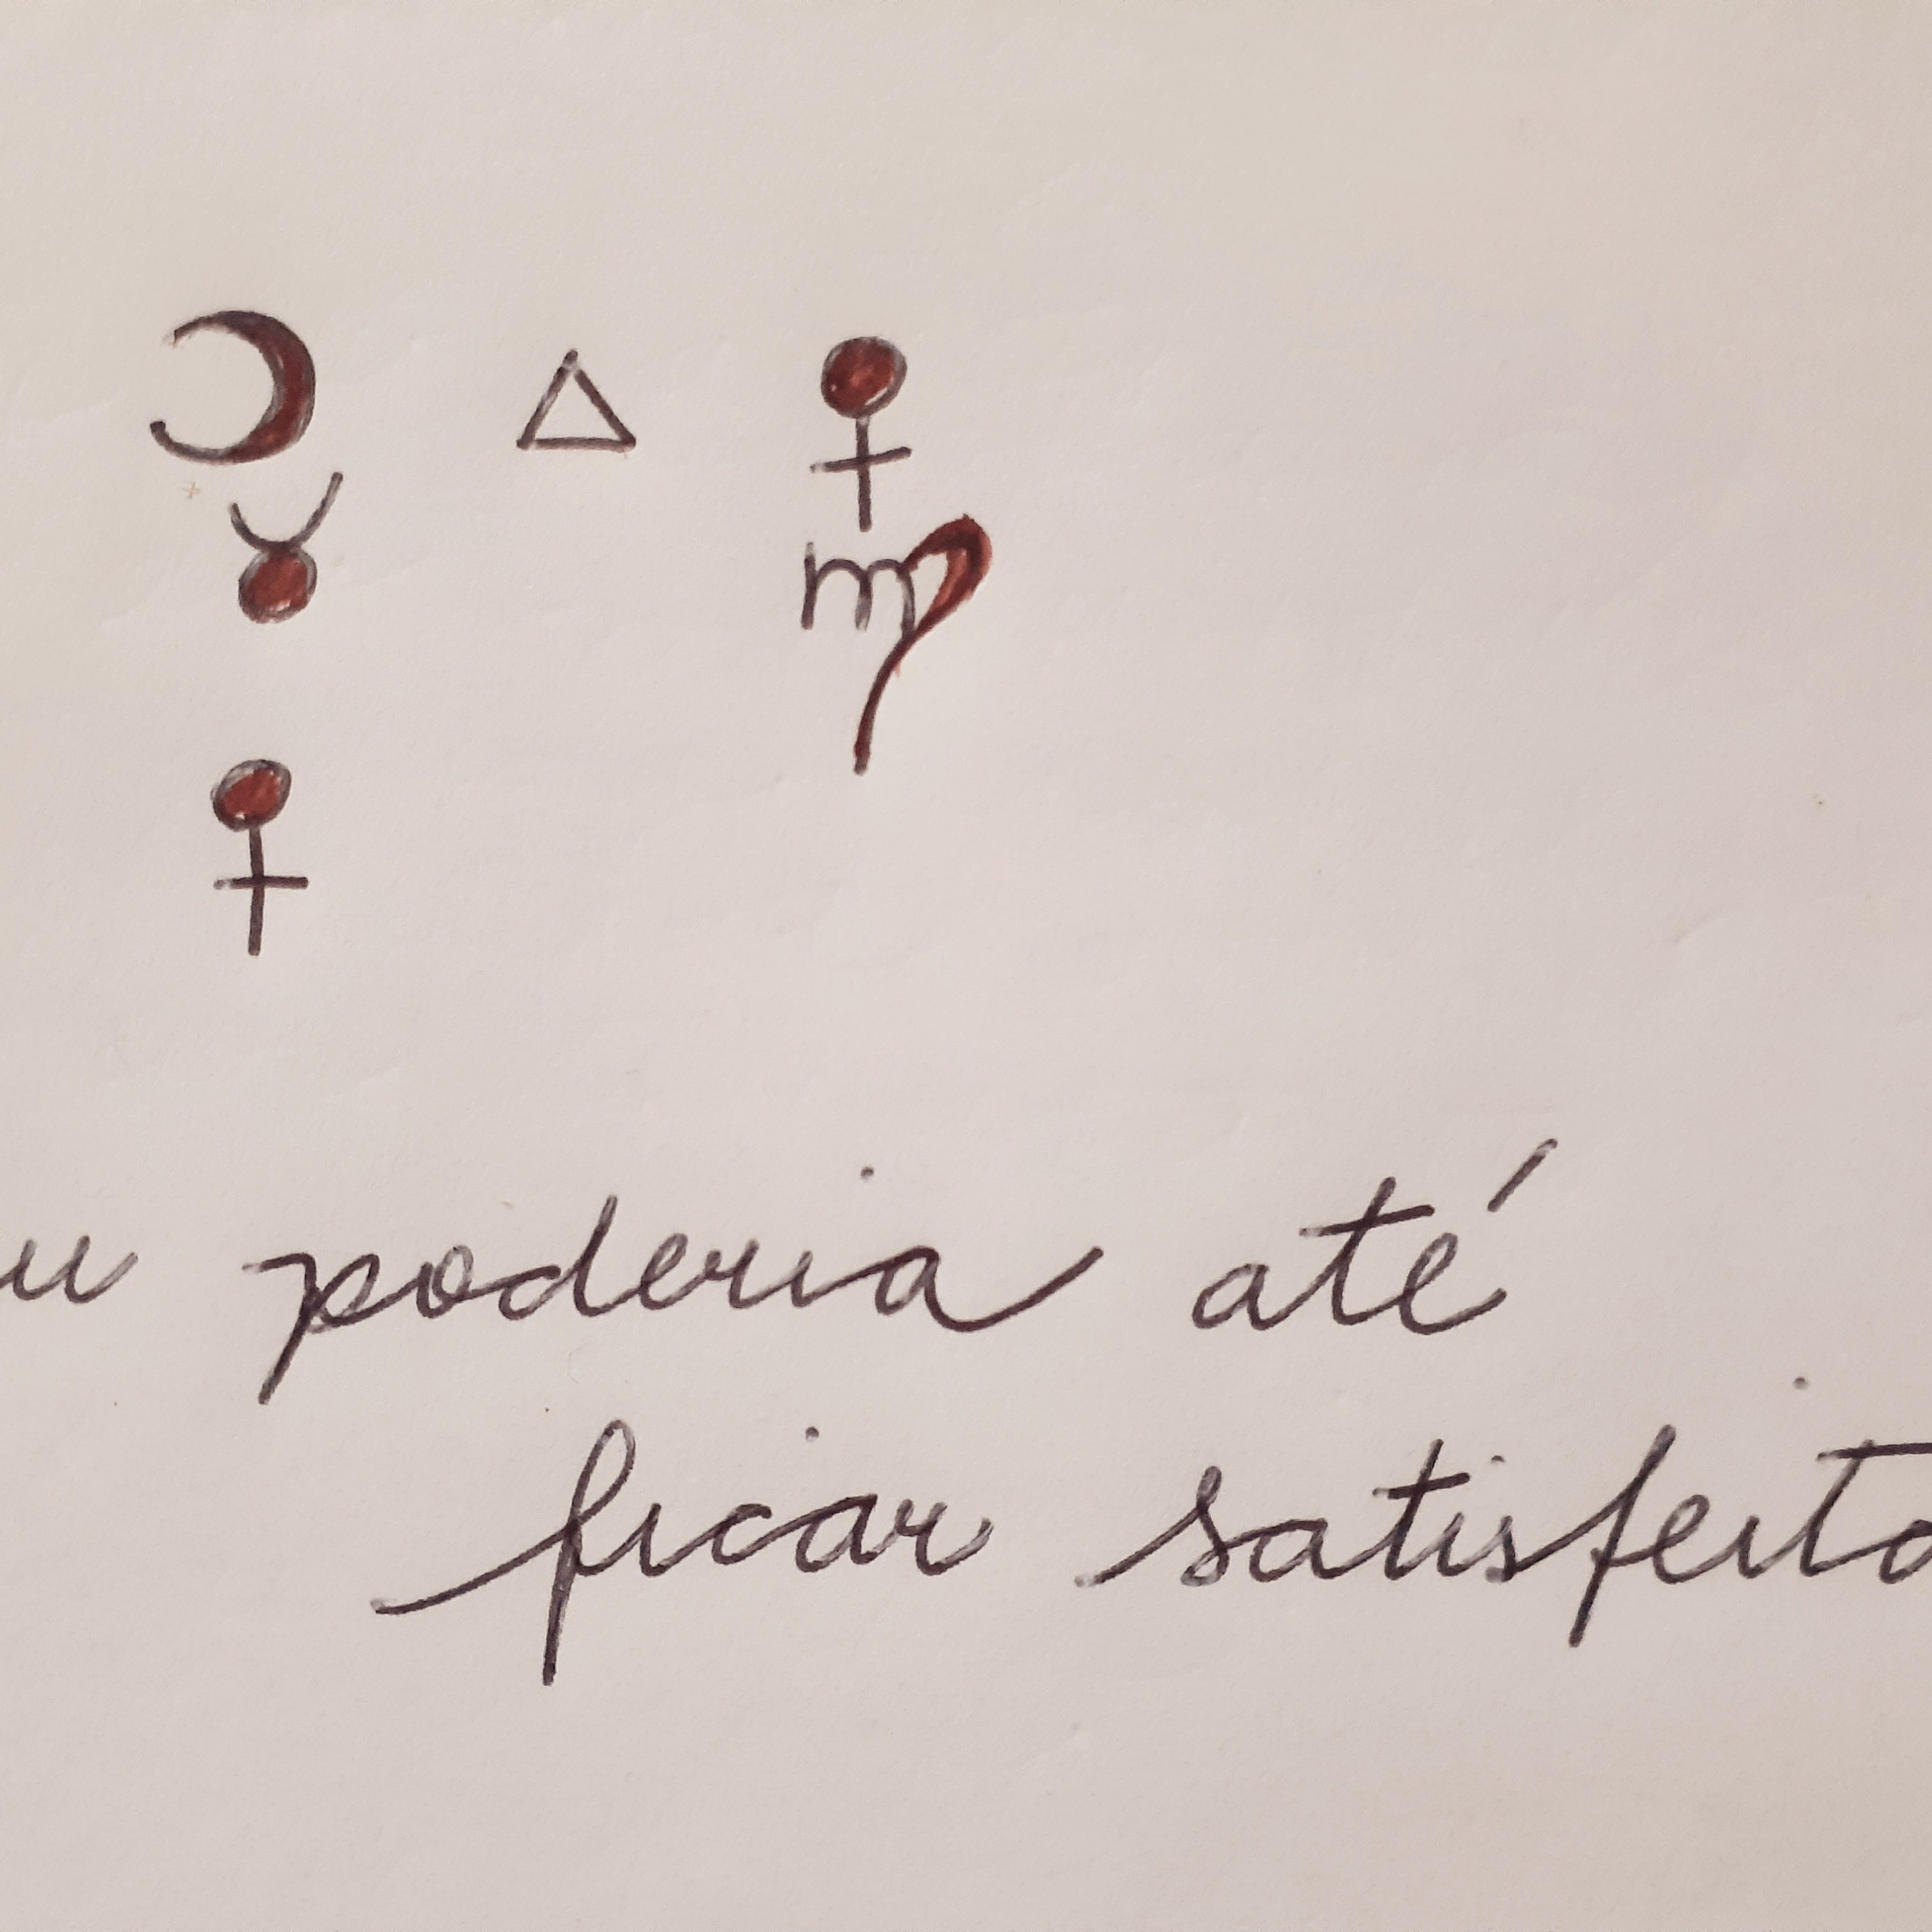 u poderia até
ficar satisfeito